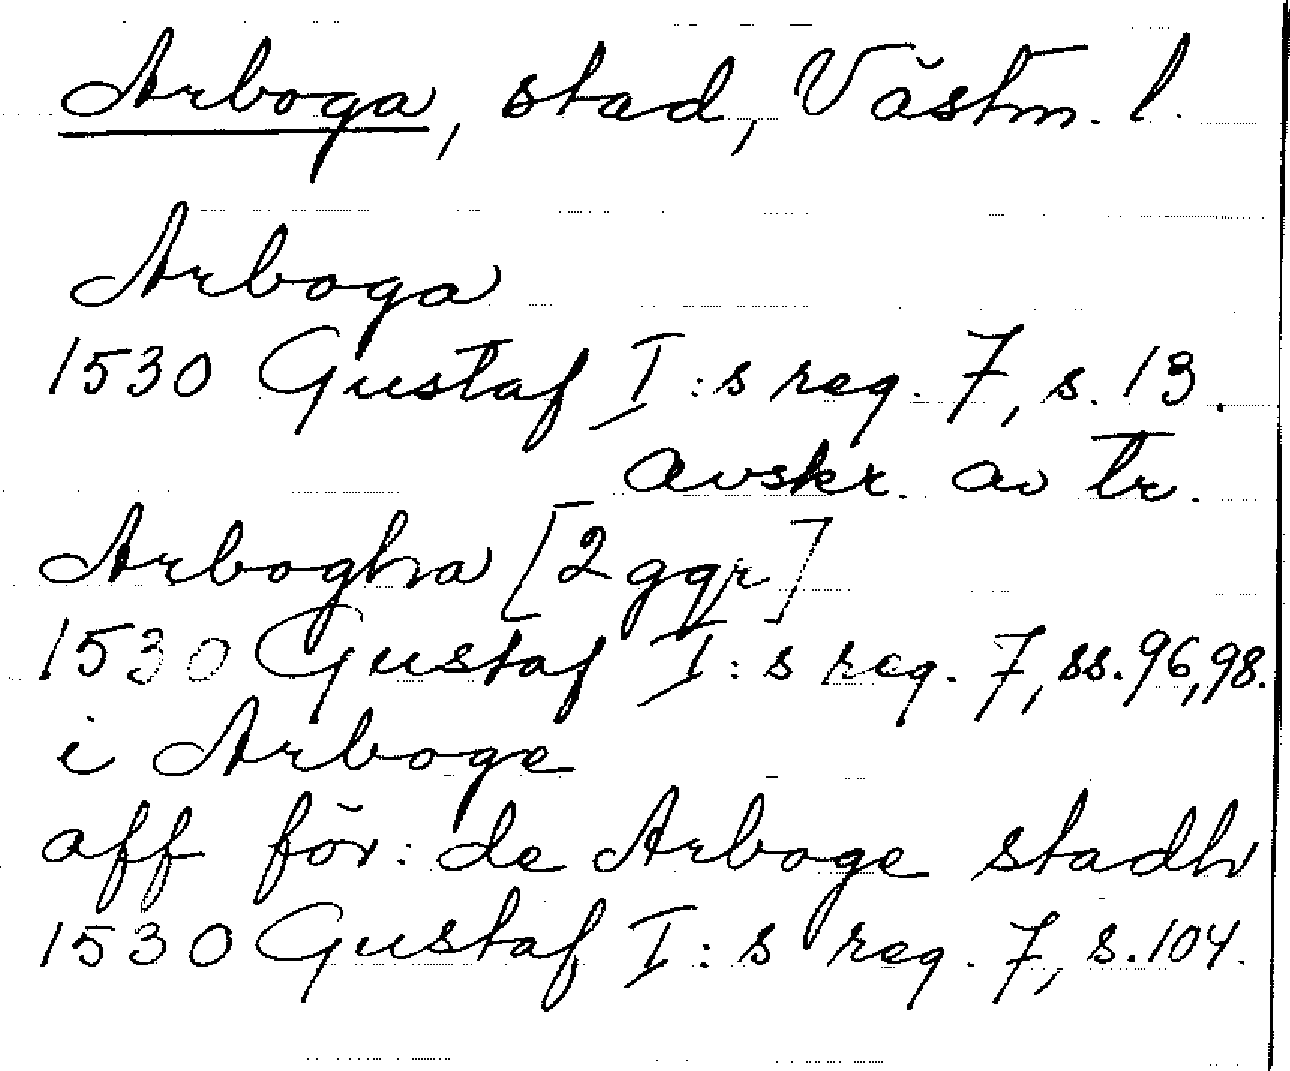 Arboga, stad, Västm. l.
Arboga
1530 Gustaf I:s reg. 7, s. 13.
avskr. av tr.
Arbogha [2 ggr]
1530 Gustaf I:s reg. 7, ss. 96, 98.
i Arboge
aff för:de Arboge stadh
1530 Gustaf I:s reg. 7, s. 104.